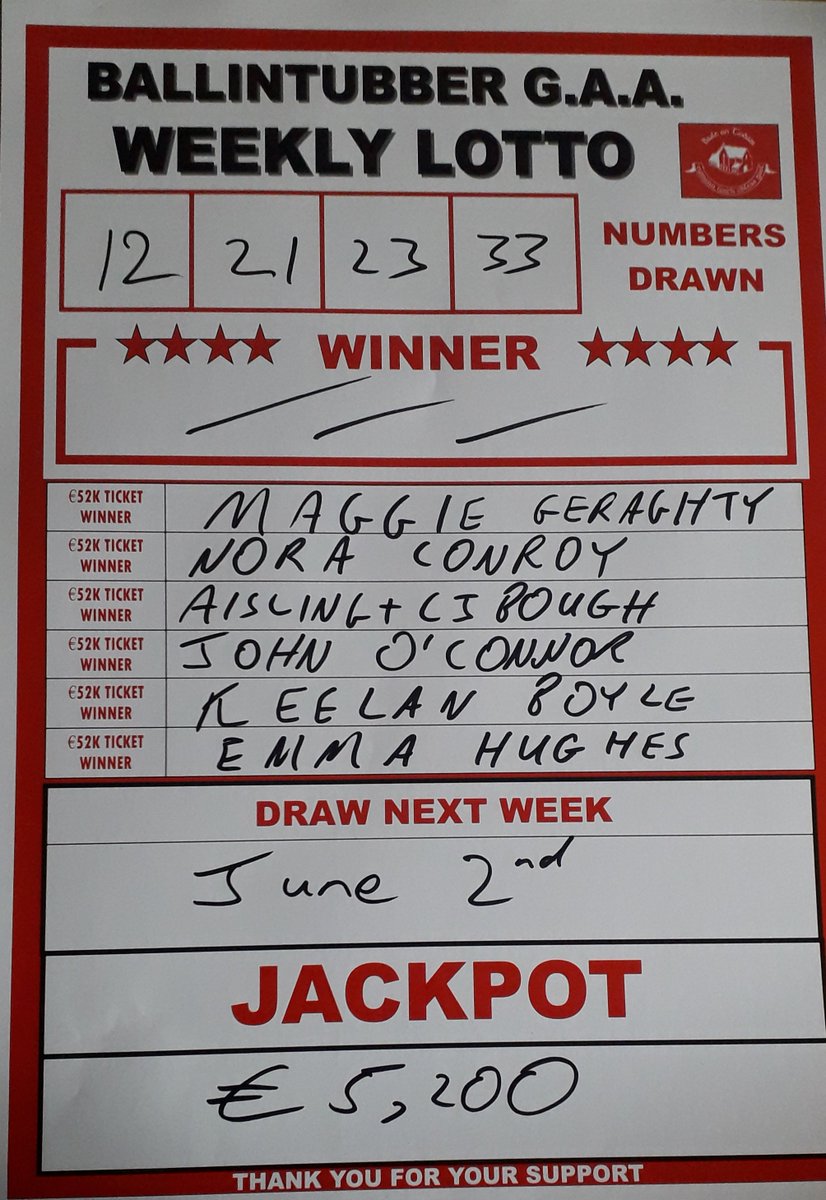 BALLINTUBBER G.A.A.
WEEKLY LOTTO
12 21 23 33
NUMBERS
DRAWN
WINNER
€52K TICKET
WINNER
MAGGIE GERAGHTY
€52K TICKET
WINNER
NORA CONROY
€52K TICKET
WINNER
AISLING + CJ BOUGH
€52K TICKET
WINNER
JOHN O'CONNOR
€52K TICKET
WINNER
KEELAN BOYLE
€52K TICKET
WINNER
EMMA HUGHES
DRAW NEXT WEEK
June 2nd
JACKPOT
€5,200
THANK YOU FOR YOUR SUPPORT